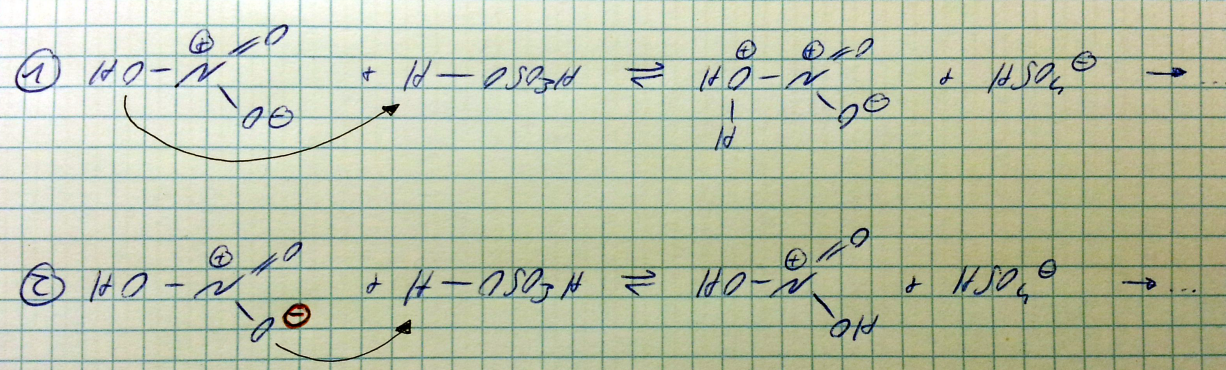 ① HO – N⊕ (= O) (– O⊖) + H – OSO₃H ⇌ HO⊕ (– H) – N⊕ (= O) (– O⊖) + HSO₄⊖ → ...
② HO – N⊕ (= O) (– O⊖) + H – OSO₃H ⇌ HO – N⊕ (= O) (– OH) + HSO₄⊖ → ...